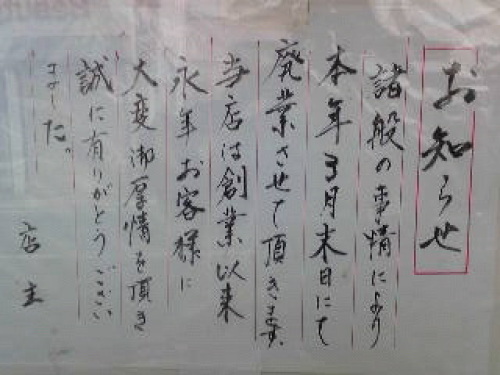 お知らせ
諸般の事情により
本年3月末日にて
廃業させて頂きます
当店は創業以来
永年お客様に
大変御厚情を頂き
誠に有りがとうござい
ました。
店主